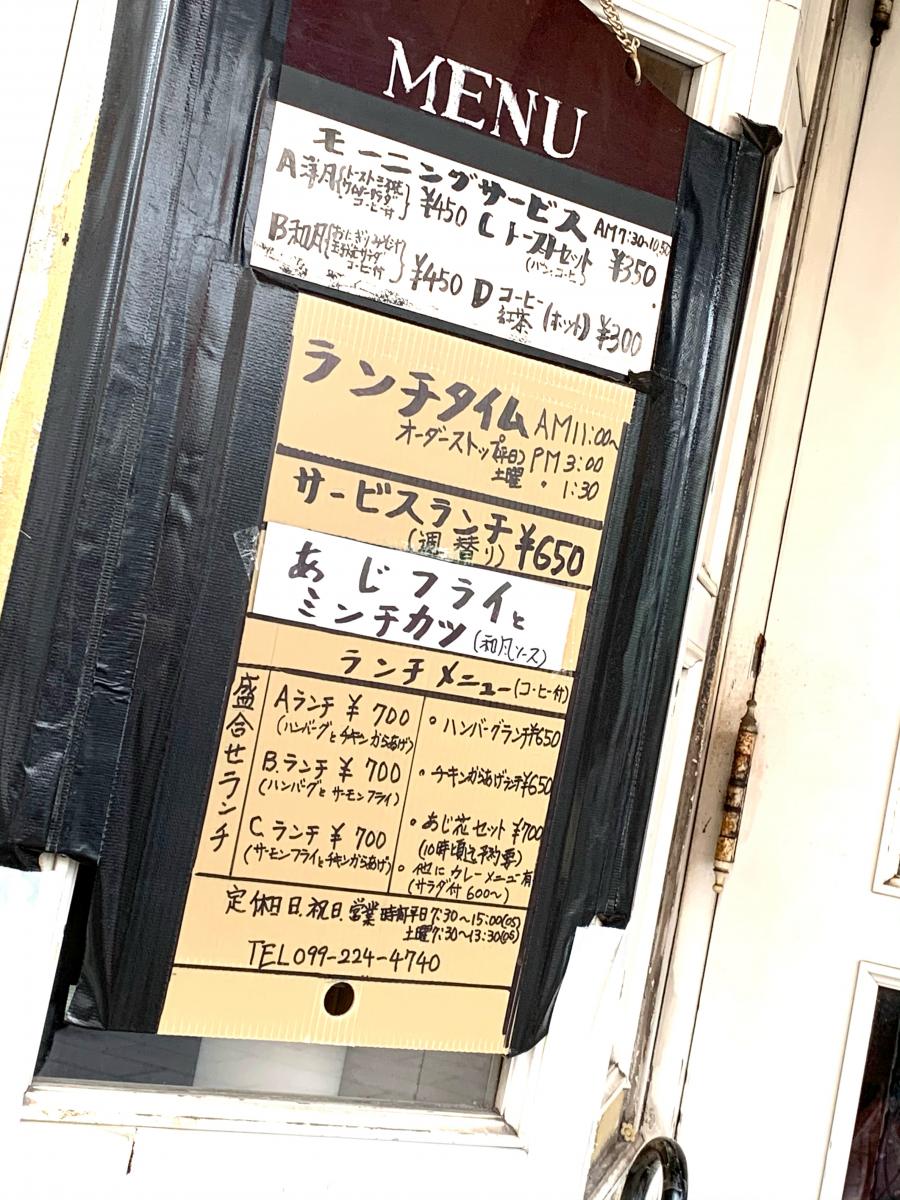 MENU
モーニングサービス AM7:30~10:50
A 洋風 {トースト ミニ
コーヒー付} ¥450
B 和風 {おにぎり みそ汁
サラダ
コーヒー付} ¥450
C トーストセット ¥350
(パン・コーヒー)
D コーヒー
紅茶 (ホット) ¥300
ランチタイム AM11:00~
オーダーストップ(平日) PM3:00
土曜 〃 1:30
サービスランチ
(週替り) ¥650
あじフライと
ミンチカツ (和風ソース)
ランチメニュー (コーヒー付)
盛合せランチ
Aランチ ¥700
(ハンバーグとチキンからあげ)
B.ランチ ¥700
(ハンバーグと サーモンフライ)
C.ランチ ¥700
(サーモンフライとチキンからあげ)
・ハンバーグランチ¥650
・チキンからあげランチ¥650
・あじ花セット ¥700
(10時頃迄予約要)
・他に カレーメニュー有
(サラダ付 600~)
定休日 日.祝日.営業時間平日7:30~15:00(OS)
土曜7:30~13:30(OS)
TEL 099-224-4740